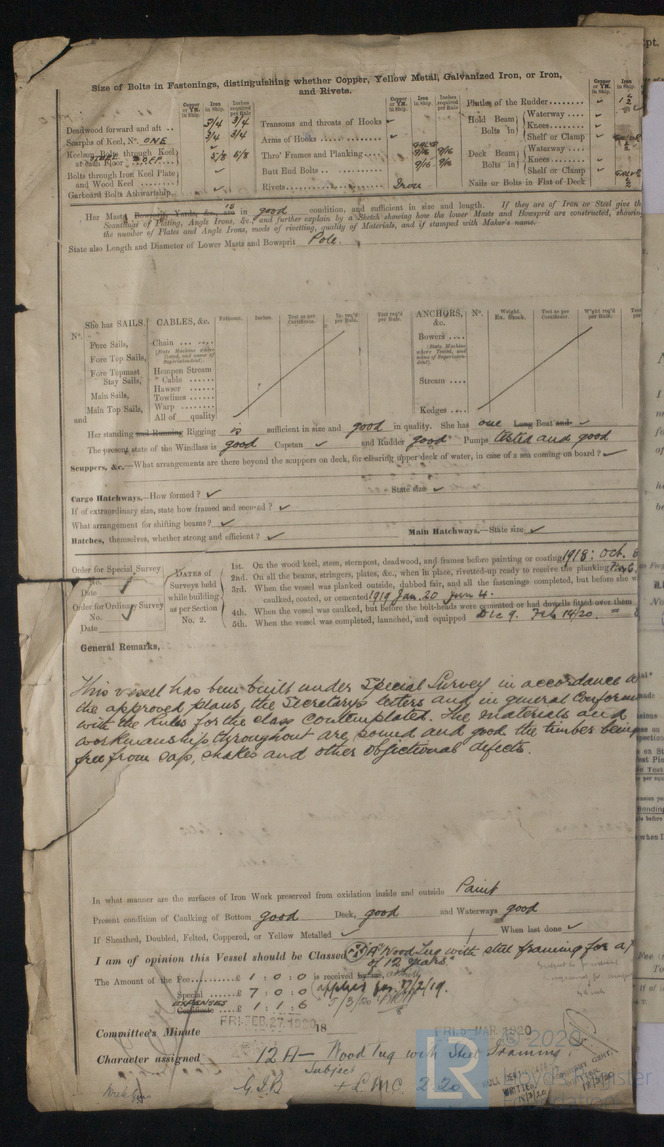 Size of Bolts in Fastenings, distinguishing whether Copper, Yellow Metal, Galvanized Iron, or Iron,
and Rivets.
Copper or YM. in Ship. Iron in Ship. Inches required per Rule
Deadwood forward and aft .. 3/4 3/4
Scarphs of Keel, No. ONE 3/4 3/4
Keelson Bolts through Keel at each Floor 5/8 5/8
Bolts through Iron Keel Plate and Wood Keel
Garboard Bolts Athwartship
Transoms and throats of Hooks ✓
Arms of Hooks ✓
Thro' Frames and Planking 9/16 9/16
Butt End Bolts
Rivets Iron
Pintles of the Rudder
Hold Beam Bolts in { Waterway ✓
Knees ✓
Shelf or Clamp
Deck Beam Bolts in { Waterway ✓
Knees ✓
Shelf or Clamp
Nails or Bolts in Flat of Deck
Her Masts, Bowsprit, Yards, &c., are is in good condition, and sufficient in size and length. If they are of Iron or Steel give the
Scantlings of Plating, Angle Irons, &c., and further explain by a Sketch showing how the lower Masts and Bowsprit are constructed, showing
the number of Plates and Angle Irons, mode of rivetting, quality of Materials, and if stamped with Maker's name.
State also Length and Diameter of Lower Masts and Bowsprit Pole.
She has SAILS. CABLES, &c. Fathoms. Inches. Test as per Certificate. In. req'd per Rule. Test req'd per Rule. ANCHORS, &c. No. Weight. Ex. Stock. Test as per Certificate W'ght req'd per Rule.
No.
Fore Sails, Chain
Fore Top Sails,
Fore Topmast Stay Sails,
Main Sails,
Main Top Sails,
and
Hempen Stream
" Cable
Hawser
Towlines
Warp
All of quality
Bowers
Stream
Kedges
Her standing and Running Rigging is sufficient in size and good in quality. She has one Long Boat and ✓
The present state of the Windlass is good Capstan ✓ and Rudder good Pumps tested and good
Scuppers, &c.—What arrangements are there beyond the scuppers on deck, for clearing upper deck of water, in case of a sea coming on board? ✓
Cargo Hatchways.—How formed? ✓ State size ✓
If of extraordinary size, state how framed and secured? ✓
What arrangement for shifting beams? ✓
Hatches, themselves, whether strong and efficient? ✓ Main Hatchways.—State size ✓
Order for Special Survey
No. ✓
Date
Order for Ordinary Survey
No. ✓
Date
DATES of Surveys held while building as per Section No. 2.
1st. On the wood keel, stem, sternpost, deadwood, and frames before painting or coating 1918: Oct. 6
2nd. On all the beams, stringers, plates, &c., when in place, rivetted-up ready to receive the planking
3rd. When the vessel was planked outside, dubbed fair, and all the fastenings completed, but before she w
caulked, coated, or cemented 1919 Jan. 20 Jun 4.
4th. When the vessel was caulked, but before the bolt-heads were cemented or had dowells fitted over them
5th. When the vessel was completed, launched, and equipped Dec 9. Feb 14/20
General Remarks,
This vessel has been built under Special Survey in accordance
the approved plans, the Secretary's letters and in general Conform
with the Rules for the class contemplated. The materials and
workmanship throughout are sound and good the timber being
free from sap, shakes and other objectional defects.
In what manner are the surfaces of Iron Work preserved from oxidation inside and outside Paint
Present condition of Caulking of Bottom good Deck, good and Waterways good
If Sheathed, Doubled, Felted, Coppered, or Yellow Metalled ✓ When last done ✓
I am of opinion this Vessel should be Classed A "Wood Tug with steel framing for a
of 12 years"
The Amount of the Fee £ 1 : 0 : 0 is received by me,
Special £ 7 : 0 : 0
EXPENSES Certificate £ 1 : 1 : 6
Committee's Minute FRI. FEB. 27. 1920 18 FRI. 5 MAR. 1920
Character assigned 12 A— Wood tug with Steel Framing.
Subject
+ LMC 2.20
LR © 2020
Lloyd's Register
Foundation